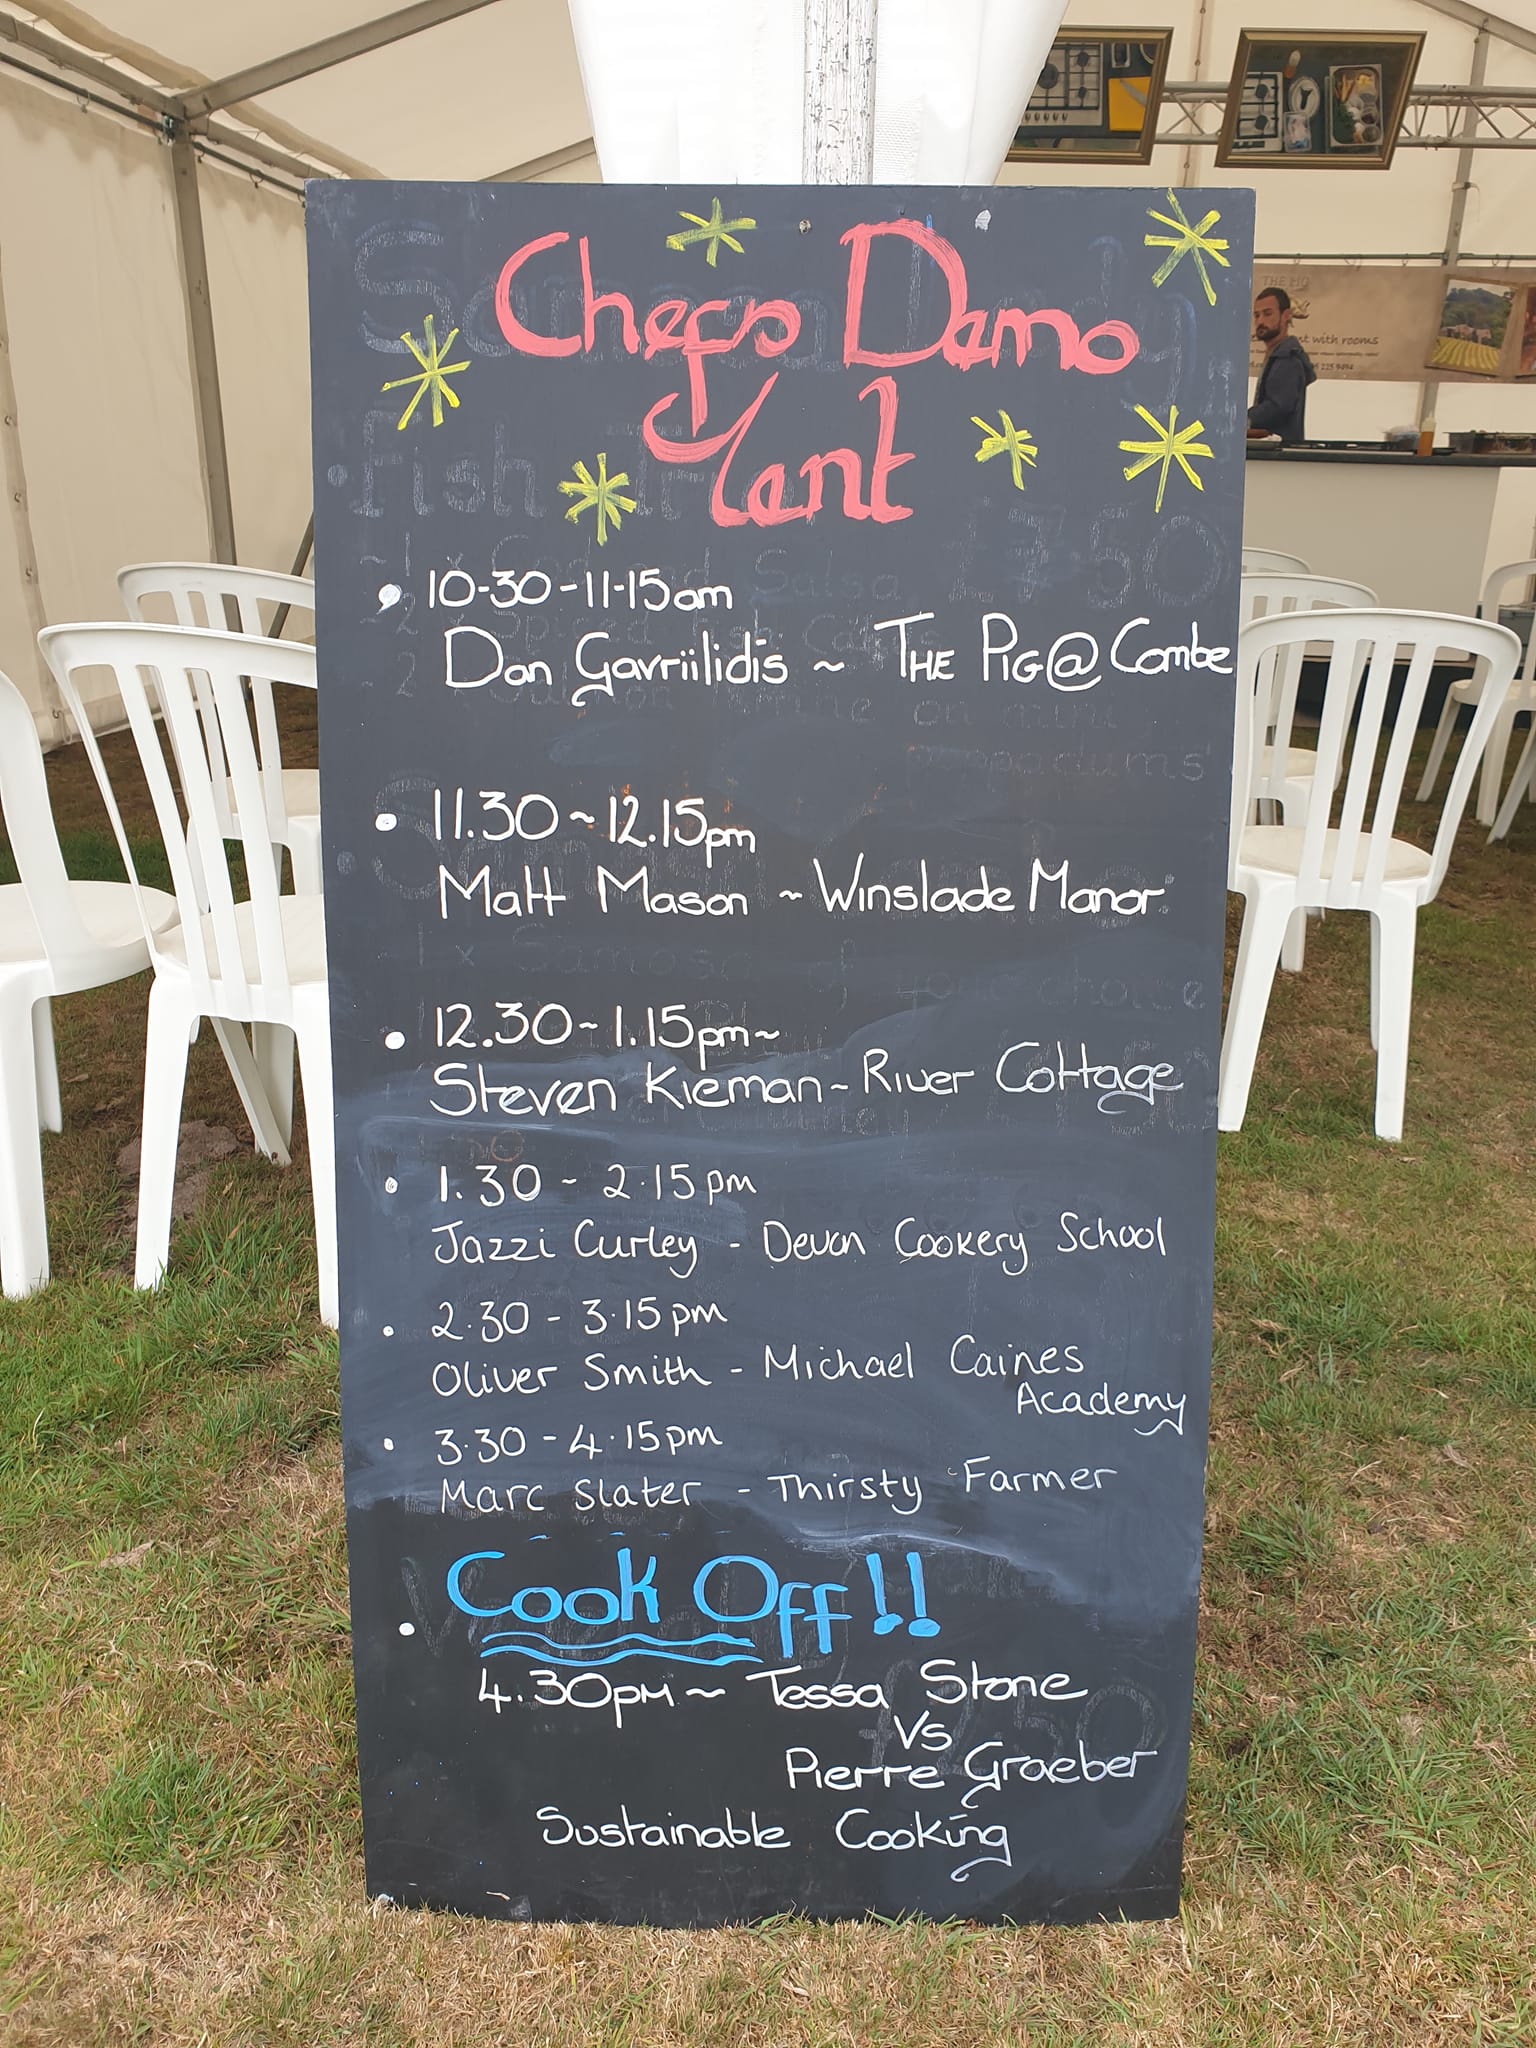 Chefs Demo
Tent
10-30-11-15am
Dan Gavriilidis ~ THE PIG@ Combe
11.30 ~ 12.15pm
Matt Mason ~ Winslade Manor
12.30 ~ 1.15pm ~
Steven Kieman ~ River Cottage
1.30 - 2.15pm
Jazzi Curley - Devon Cookery School
2.30 - 3.15pm
Oliver Smith - Michael Caines
Academy
3.30 - 4.15pm
Marc Slater - Thirsty Farmer
Cook Off!!
4.30pm ~ Tessa Stone
Vs
Pierre Graeber
Sustainable Cooking
with rooms